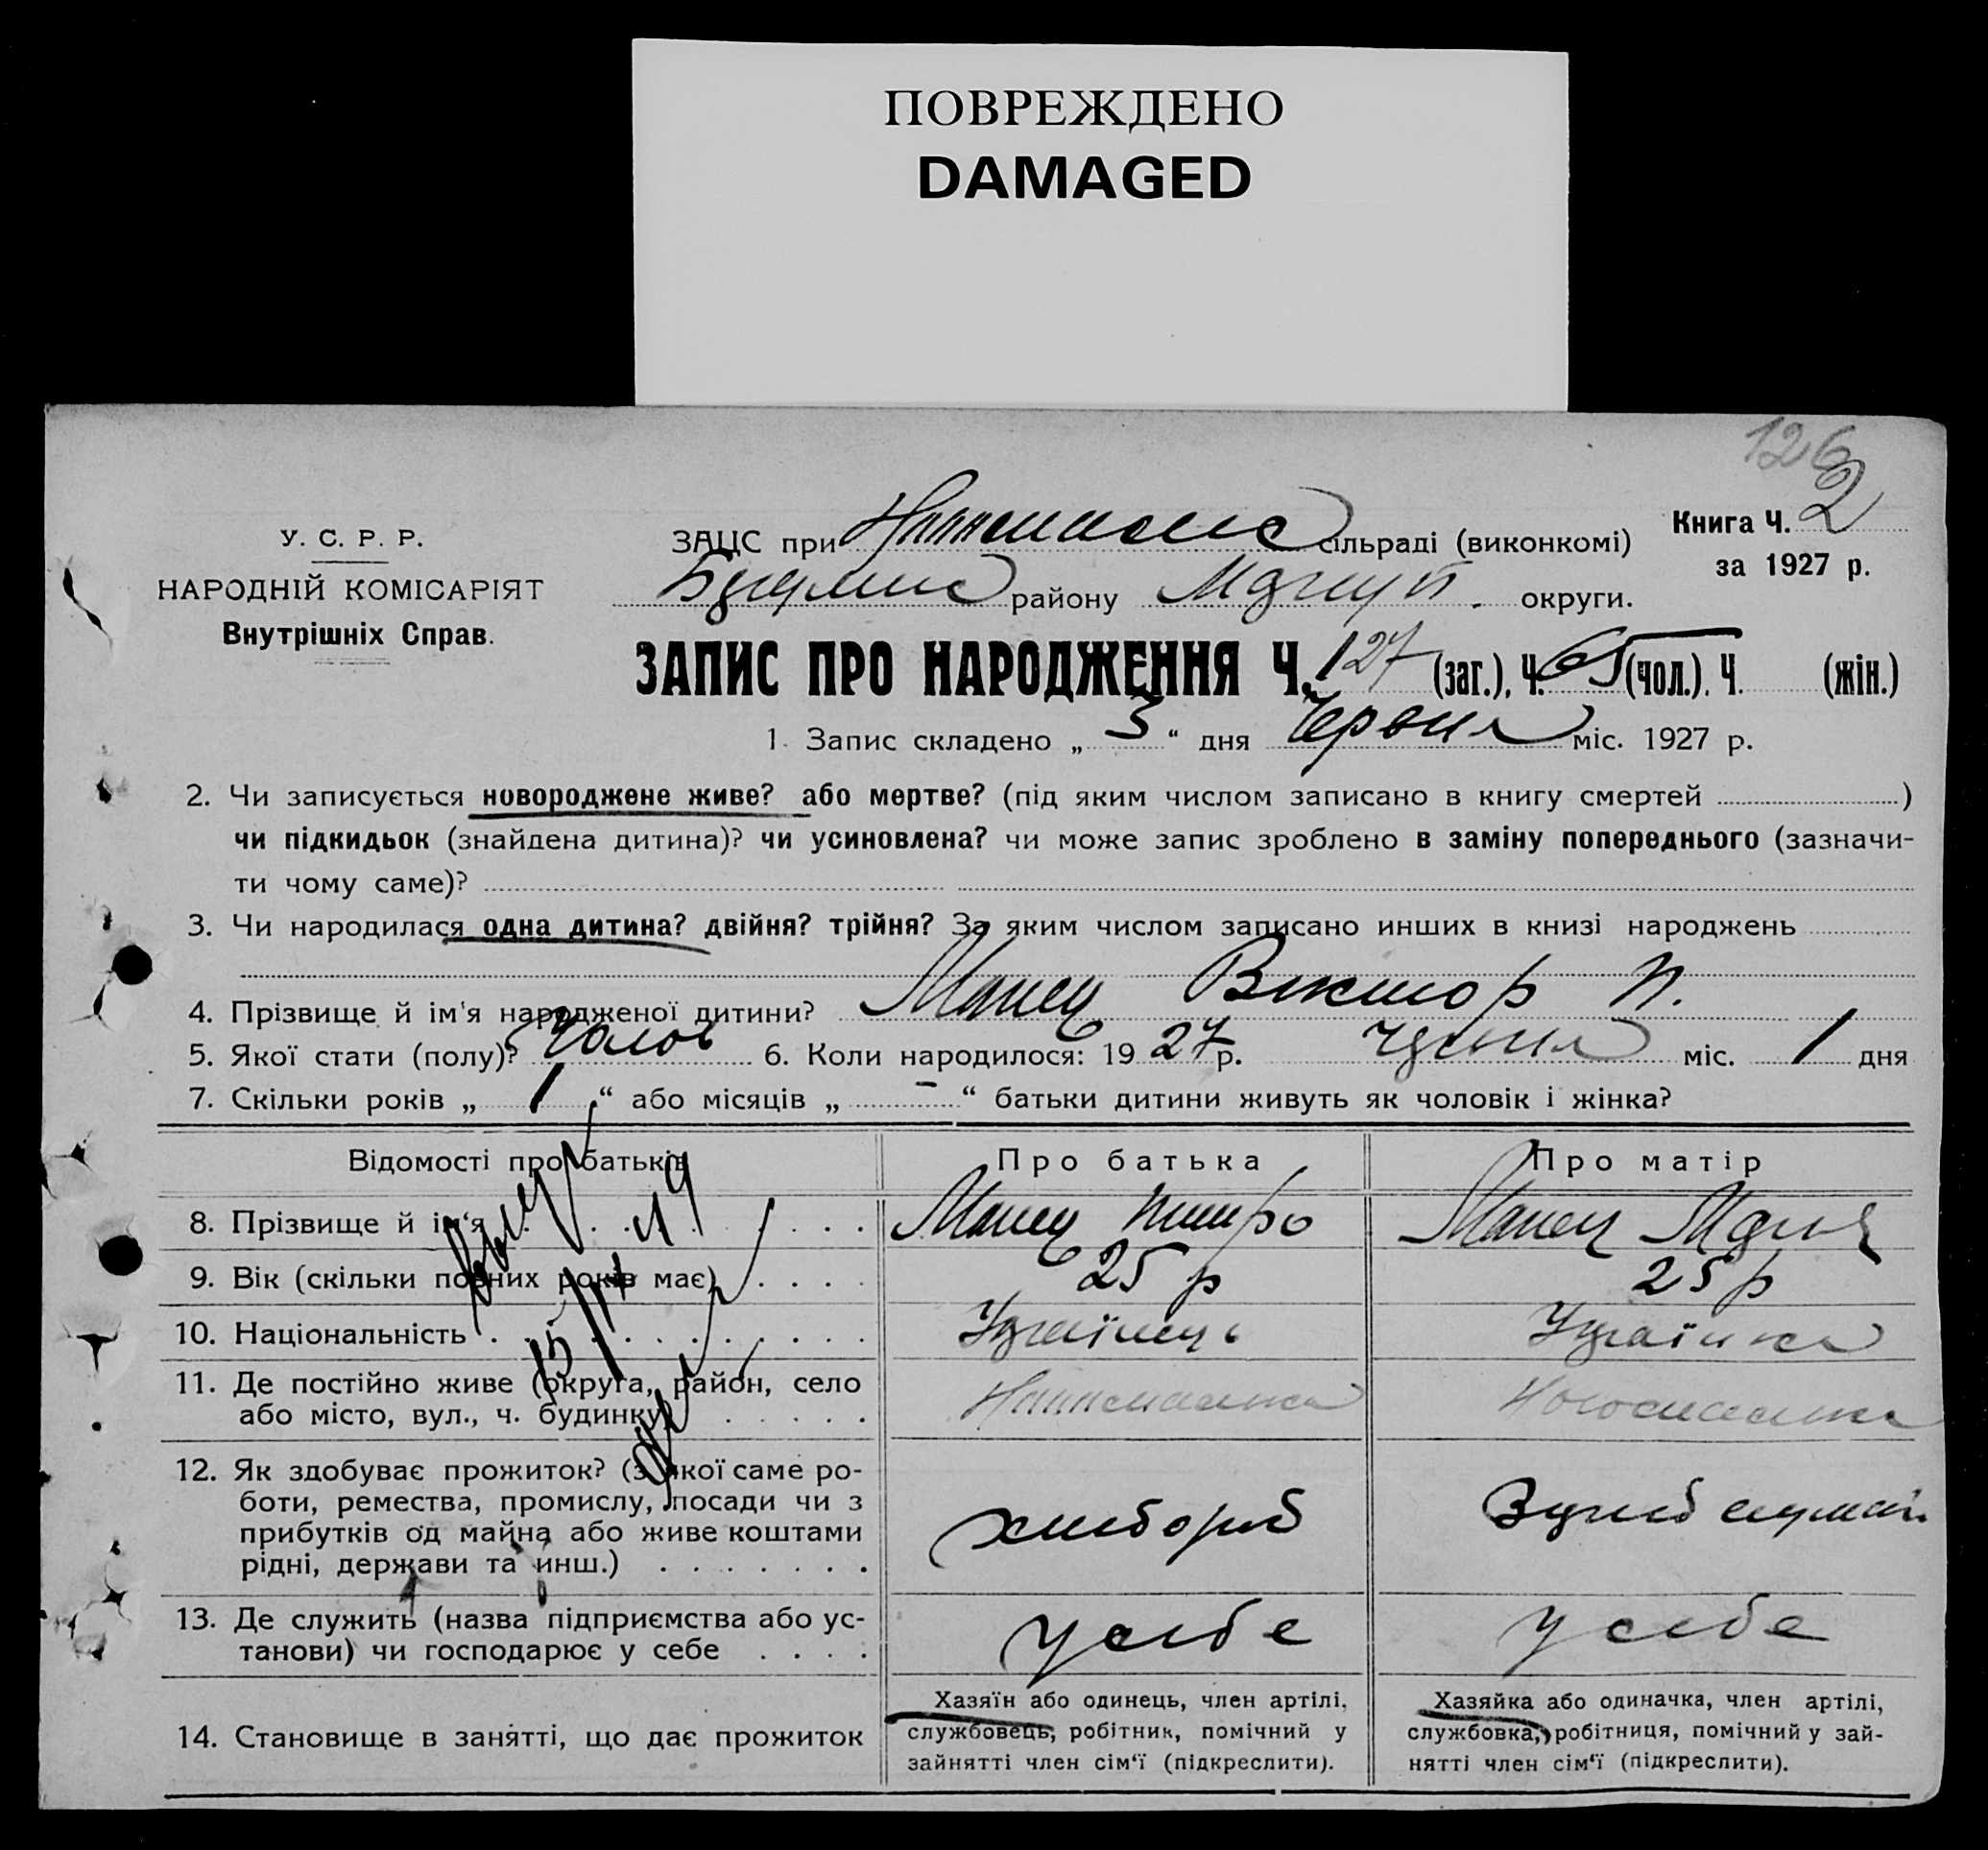 ПОВРЕЖДЕНО
DAMAGED
126
У. С. Р. Р.
НАРОДНІЙ КОМІСАРІЯТ
Внутрішніх Справ.
ЗАЦС при сільраді (виконкомі)
Книга Ч. 2
за 1927 р.
району округи.
ЗАПИС ПРО НАРОДЖЕННЯ Ч. 127 (заг.), Ч. 65 (чол.), Ч. (жін.)
1. Запис складено „ 3 “ дня Червня міс. 1927 р.
2. Чи записується новороджене живе? або мертве? (під яким числом записано в книгу смертей )
чи підкидьок (знайдена дитина)? чи усиновлена? чи може запис зроблено в заміну попереднього (зазначи-
ти чому саме)?
3. Чи народилася одна дитина? двійня? трійня? За яким числом записано инших в книзі народжень
4. Прізвище й ім'я народженої дитини? Виктор П.
5. Якої стати (полу)? Чолов 6. Коли народилося: 19 27 р. міс. 1 дня
7. Скільки років „ 1 “ або місяців „ - “ батьки дитини живуть як чоловік і жінка?
Відомості про батьків
Про батька
Про матір
8. Прізвище й ім‘я
9. Вік (скільки повних років має)
25 р
25 р
10. Національність
Українець
Українка
11. Де постійно живе (округа, район, село
або місто, вул., ч. будинку)
12. Як здобуває прожиток? (з якої саме ро-
боти, ремества, промислу, посади чи з
прибутків од майна або живе коштами
рідні, держави та инш.)
хлибороб
13. Де служить (назва підприємства або ус-
танови) чи господарює у себе
у себе
у себе
14. Становище в занятті, що дає прожиток
Хазяїн або одинець, член артілі,
службовець, робітник, помічний у
зайнятті член сім‘ї (підкреслити).
Хазяйка або одиначка, член артілі,
службовка, робітниця, помічний у зай-
нятті член сім‘ї (підкреслити).